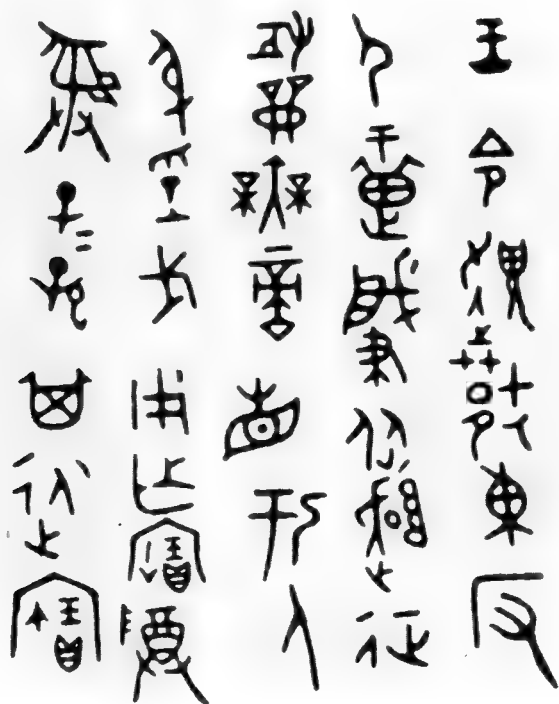 王令趞𢦚東反
尸疐肇從趞征
攻龠無啻省于人
身孚戈用乍寶尊
彝子=孫其永寶